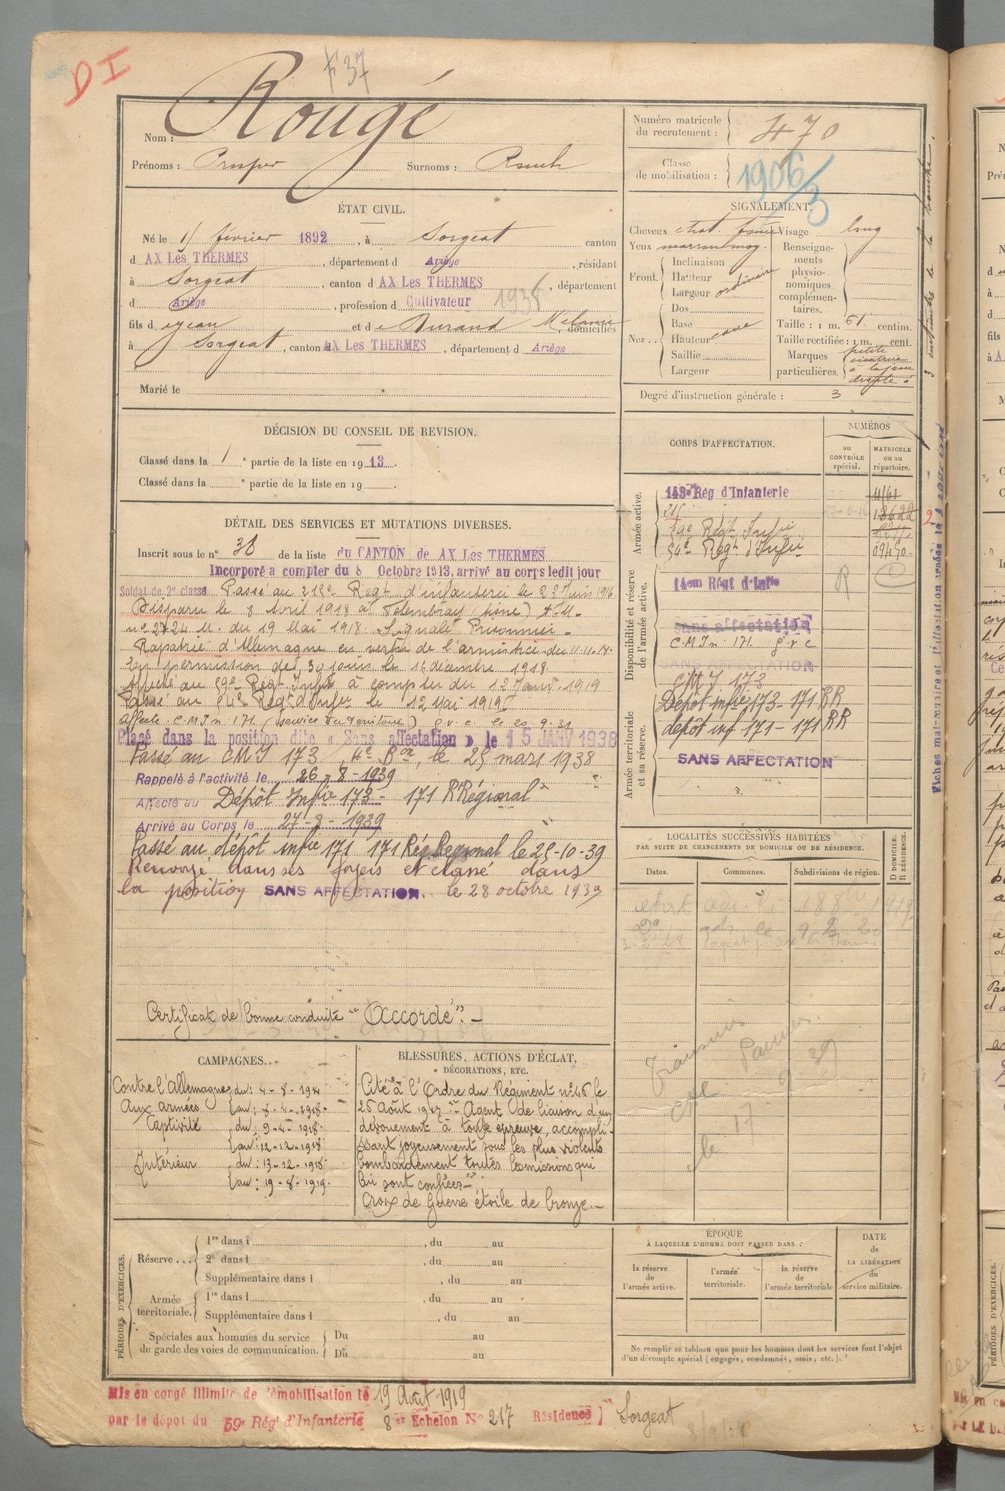 DI
F 37
Rougé
Nom :
Prénoms : Prosper Surnoms :
Numéro matricule
du recrutement : 470
Classe
de mobilisation : 1906/3
ÉTAT CIVIL.
Né le 1 février 1892, à Sorgeat canton
d AX Les THERMES, département d Ariège, résidant
à Sorgeat, canton d AX Les THERMES, département
d Ariège, profession d Cultivateur 1935
fils d e Jean et d e Durand Mélanie domiciliés
à Sorgeat, canton d AX Les THERMES, département d Ariège
Marié le
SIGNALEMENT.
Cheveux chat. foncé Visage long
Yeux marron moy.
Front. Inclinaison
Hauteur ordinaire
Largeur
Nez... Dos
Base cave
Hauteur
Saillie
Largeur
Renseigne-
ments
physio-
nomiques
complémen-
taires.
Taille : 1 m. 51 centim.
Taille rectifiée : 1 m. cent.
Marques
particulières. petite
cicatrice
à la joue
droite
Degré d'instruction générale : 3
DÉCISION DU CONSEIL DE REVISION.
Classé dans la 1e partie de la liste en 1913.
Classé dans la e partie de la liste en 19
CORPS D'AFFECTATION.
NUMÉROS
AU
CONTRÔLE
spécial.
MATRICULE
ou au
répertoire.
Armée active.
143e Rég d'Infanterie
215
59e Regt Infie
54e Regt d'Infie
Disponibilité et réserve
de l'armée active.
14em Régt d'Infie R
sans affectation
C.M.In 171. g.v.c
SANS AFFECTATION
CMI 173
Armée territoriale
et sa réserve.
Dépôt infie 173 - 171 RR
dépôt inf 171 - 171 RR
SANS AFFECTATION
DÉTAIL DES SERVICES ET MUTATIONS DIVERSES.
Inscrit sous le n° 38 de la liste du CANTON de AX Les THERMES
Incorporé a compter du 8 Octobre 1913, arrivé au corps ledit jour
Soldat de 2e classe Passé au 215e Regt d'infanterie le 23 Juin 1916
Disparu le 8 Avril 1918 à Folembray (Aisne) A.M.
n° 2724 M. du 19 Mai 1918. Signalé Prisonnier.
Rapatrié d'Allemagne en vertu de l'armistice du 11.11.18.
En permission de 30 jours le 16 décembre 1918.
Affecté au 59e Regt Infie à compter du 12 Janv. 1919
Passé au 54e Regt d'Infie le 12 Mai 1919
Affecté C.M.In 171 (service du territoire) g.v.c le 20.9.21
Placé dans la position dite « Sans affectation » le 15 JANV 1938
Passé au CMI 173, 4e Bon, le 25 mars 1938
Rappelé à l'activité le 26-8-1939
Affecté au Dépôt Infie 173 - 171 R Régional
Arrivé au Corps le 27-8-1939
Passé au dépôt infie 171 171 Rég Regional le 25-10-39
Renvoyé dans ses foyers et classé dans
la position SANS AFFECTATION. le 28 octobre 1939
Certificat de bonne conduite "Accordé".
LOCALITÉS SUCCESSIVES HABITÉES
PAR SUITE DE CHANGEMENTS DE DOMICILE OU DE RÉSIDENCE.
Dates. Communes. Subdivisions de région.
D DOMICILE.
R RÉSIDENCE.
CAMPAGNES.
Contre l'Allemagne du : 4-8-1914
Aux armées au : 8-4-1918.
Captivité du : 9-4-1918
au : 12-12-1918
Intérieur du : 13-12-1918
au : 19-8-1919.
BLESSURES, ACTIONS D'ÉCLAT,
DÉCORATIONS, ETC.
Cité à l'Ordre du Régiment n° 46 le
26 Août 1917 "Agent de liaison d'un
dévouement à toute épreuve, accomplis-
sant joyeusement sous les plus violents
bombardement toutes les missions qui
lui sont confiées"
Croix de Guerre étoile de bronze.
PÉRIODES D'EXERCICES.
Réserve... 1re dans l , du au
2e dans l , du au
Supplémentaire dans l , du au
Armée
territoriale. 1re dans l , du au
Supplémentaire dans l , du au
Spéciales aux hommes du service
de garde des voies de communication. Du au
Du au
ÉPOQUE
À LAQUELLE L'HOMME DOIT PASSER DANS :
la réserve
de
l'armée active.
l'armée
territoriale.
la réserve
de
l'armée territoriale
DATE
de
LA LIBÉRATION
du
service militaire.
Ne remplir ce tableau que pour les hommes dont les services font l'objet
d'un décompte spécial (engagés, condamnés, omis, etc.).
Mis en congé illimité de démobilisation le 19 Août 1919
par le dépôt du 59e Rég d'Infanterie 8e Echelon N° 217 Résidence Sorgeat